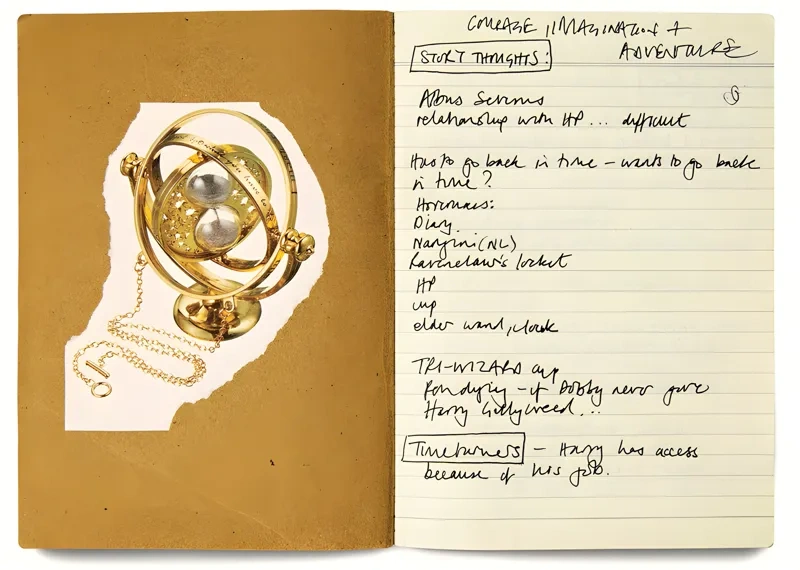 COURAGE, IMAGINATION +
ADVENTURE
STORY THOUGHTS:
Albus Severus
relationship with HP... difficult
Has to go back in time – wants to go back
in time?
Horcruxes:
Diary
Nangini (NL)
Ravenclaw's locket
HP
cup
elder wand, cloak
TRI-WIZARD cup
Ron dying – if Dobby never gave
Harry Gillyweed...
Timeturners – Harry has access
because of his job.